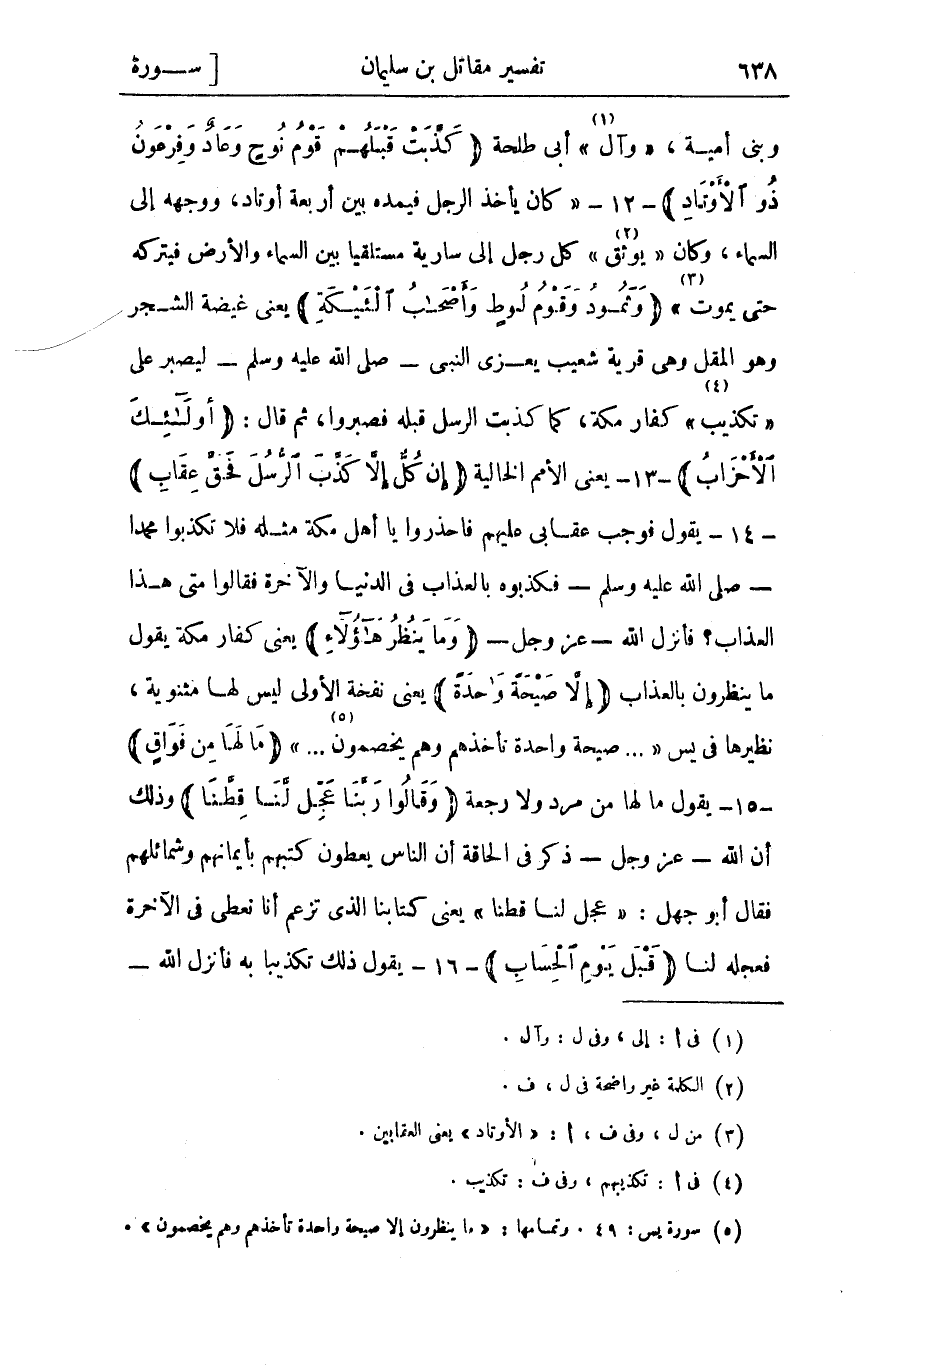 ٦٣٨ تفسير مقاتل بن سليمان [ ســورة
وبنى أميـة ، « وآل (١) » أبى طلحة ﴿ كَذَّبَتْ قَبْلَهُـمْ قَوْمُ نُوحٍ وَعَادٌ وَفِرْعَوْنُ
ذُو ٱلْأَوْتَادِ ﴾ ـ ١٢ ـ « كان يأخذ الرجل فيمده بين أربعة أوتاد، ووجهه إلى
السماء ، وكان « يوثق (٢) » كل رجل إلى سارية مستلقيا بين السماء والأرض فيتركه
حتى يموت (٣) » ﴿ وَثَمُـودُ وَقَوْمُ لُوطٍ وَأَصْحَـٰبُ ٱلْـَٔيْـكَةِ ﴾ يعنى غيضة الشـجر
وهو المقل وهى قرية شعيب يعـزى النبى ــ صلى الله عليه وسلم ــ ليصبر على
« تكذيب (٤) » كفار مكة ، كما كذبت الرسل قبله فصبروا ، ثم قال : ﴿ أُولَـٰٓئِـكَ
ٱلْأَحْزَابُ ﴾ ـ ١٣ ـ يعنى الأمم الخالية ﴿ إِن كُلٌّ إِلَّا كَذَّبَ ٱلرُّسُلَ فَحَقَّ عِقَابِ ﴾
ـ ١٤ ـ يقول فوجب عقـابى عليهم فاحذروا يا أهل مكة مثـله فلا تكذبوا محمدا
ــ صلى الله عليه وسلم ــ فكذبوه بالعذاب فى الدنيـا والآخرة فقالوا متى هـذا
العذاب؟ فأنزل الله ــ عز وجل ــ ﴿ وَمَا يَنظُرُ هَـٰٓؤُلَآءِ ﴾ يعنى كفار مكة يقول
ما ينظرون بالعذاب ﴿ إِلَّا صَيْحَةً وَٰحِدَةً ﴾ يعنى نفخة الأولى ليس لهـا مثنوية ،
نظيرها فى يس « ... صيحة واحدة تأخذهم وهم يخصمون (٥) ... » ﴿ مَا لَهَا مِن فَوَاقٍ ﴾
ـ ١٥ ـ يقول ما لها من مرد ولا رجعة ﴿ وَقَالُوا رَبَّنَا عَجِّل لَّنَـا قِطَّنَا ﴾ وذلك
أن الله ــ عز وجل ــ ذكر فى الحاقة أن الناس يعطون كتبهم بأيمانهم وشمائلهم
فقال أبو جهل : « عجل لنـا قطنا » يعنى كتابنا الذى تزعم أنا نعطى فى الآخرة
فعجله لنـا ﴿ قَبْلَ يَوْمِ ٱلْحِسَابِ ﴾ ـ ١٦ ـ يقول ذلك تكذيبا به فأنزل الله ــ
(١) فى أ : إلى ، وفى ل : وآل .
(٢) الكلمة غير واضحة فى ل ، ف .
(٣) من ل ، وفى ف ، أ : « الأوتاد » يعنى العقابين .
(٤) فى أ : تكذيبهم ، وفى ف : تكذيب .
(٥) سورة يس : ٤٩ . وتمـامها : « ما ينظرون إلا صيحة واحدة تأخذهم وهم يخصمون » .